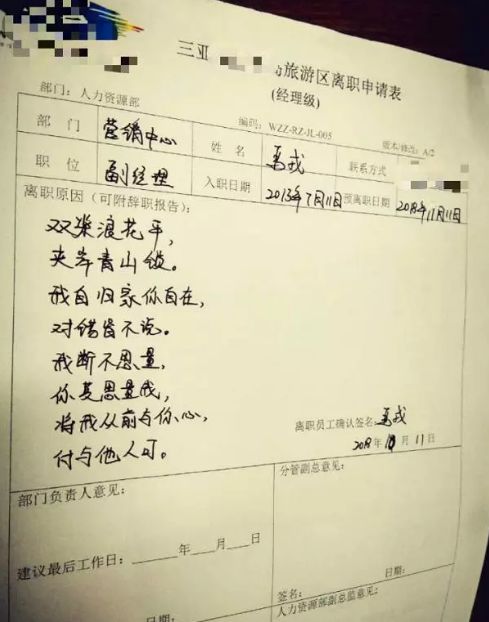 三亚
旅游区离职申请表
(经理级)
部门：人力资源部 编码：WZZ-RZ-JL-005 版本/修改：A/2
部 门 营销中心 姓 名 联系方式
职 位 副经理 入职日期 2013年7月11日 预离职日期 2018年11月11日
离职原因（可附辞职报告）：
双桨浪花平，
夹岸青山锁。
我自归家你自在，
对错皆不说。
我断不思量，
你莫思量我，
将我从前与你心，
付与他人可。
离职员工确认签名：
2018年10月11日
部门负责人意见： 分管副总意见：
建议最后工作日：______年____月____日
签名： 日期：
日期： 人力资源部副总监意见：